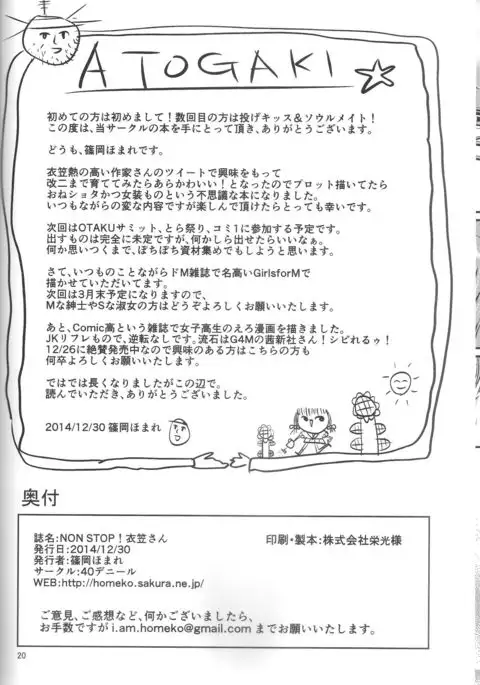 ATOGAKI
初めての方は初めまして！数回目の方は投げキッス＆ソウルメイト！
この度は、当サークルの本を手にとって頂き、ありがとうございます。
どうも、篠岡ほまれです。
衣笠熱の高い作家さんのツイートで興味をもって
改二まで育ててみたらあらかわいい！となったのでプロット描いてたら
おねショタかつ女装ものという不思議な本になりました。
いつもながらの変な内容ですが楽しんで頂けたらとっても幸いです。
次回はOTAKUサミット、とら祭り、コミ1に参加する予定です。
出すものは完全に未定ですが、何かしら出せたらいいなぁ。
何か思いつくまで、ぼちぼち資材集めでもしようと思います。
さて、いつものことながらドM雑誌で名高いGirlsforMで
描かせていただいてます。
次回は3月末予定になりますので、
Mな紳士やSな淑女の方はどうぞよろしくお願いいたします。
あと、Comic高という雑誌で女子高生のえろ漫画を描きました。
JKリフレもので、逆転なしです。流石はG4Mの茜新社さん！シビれるゥ！
12/26に絶賛発売中なので興味のある方はこちらの方も
何卒よろしくお願いします。
ではでは長くなりましたがこの辺で。
読んでいただき、ありがとうございました。
2014/12/30 篠岡ほまれ
奥付
誌名:NON STOP！衣笠さん
発行日:2014/12/30
発行者:篠岡ほまれ
サークル:40デニール
WEB:http://homeko.sakura.ne.jp/
印刷・製本:株式会社栄光様
ご意見、ご感想など、何かございましたら、
お手数ですが i.am.homeko@gmail.com までお願いいたします。
20